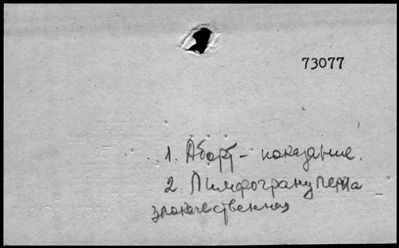 73077
1. Аборт - показание.
2. Лимфогранулема
злокачественная